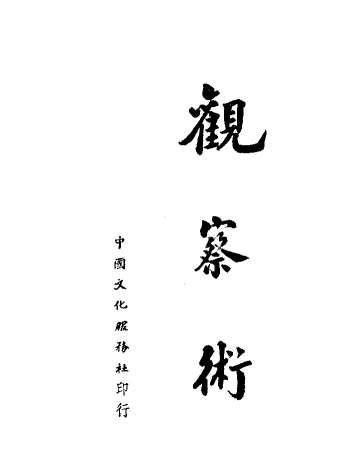 觀察術
中國文化服務社印行